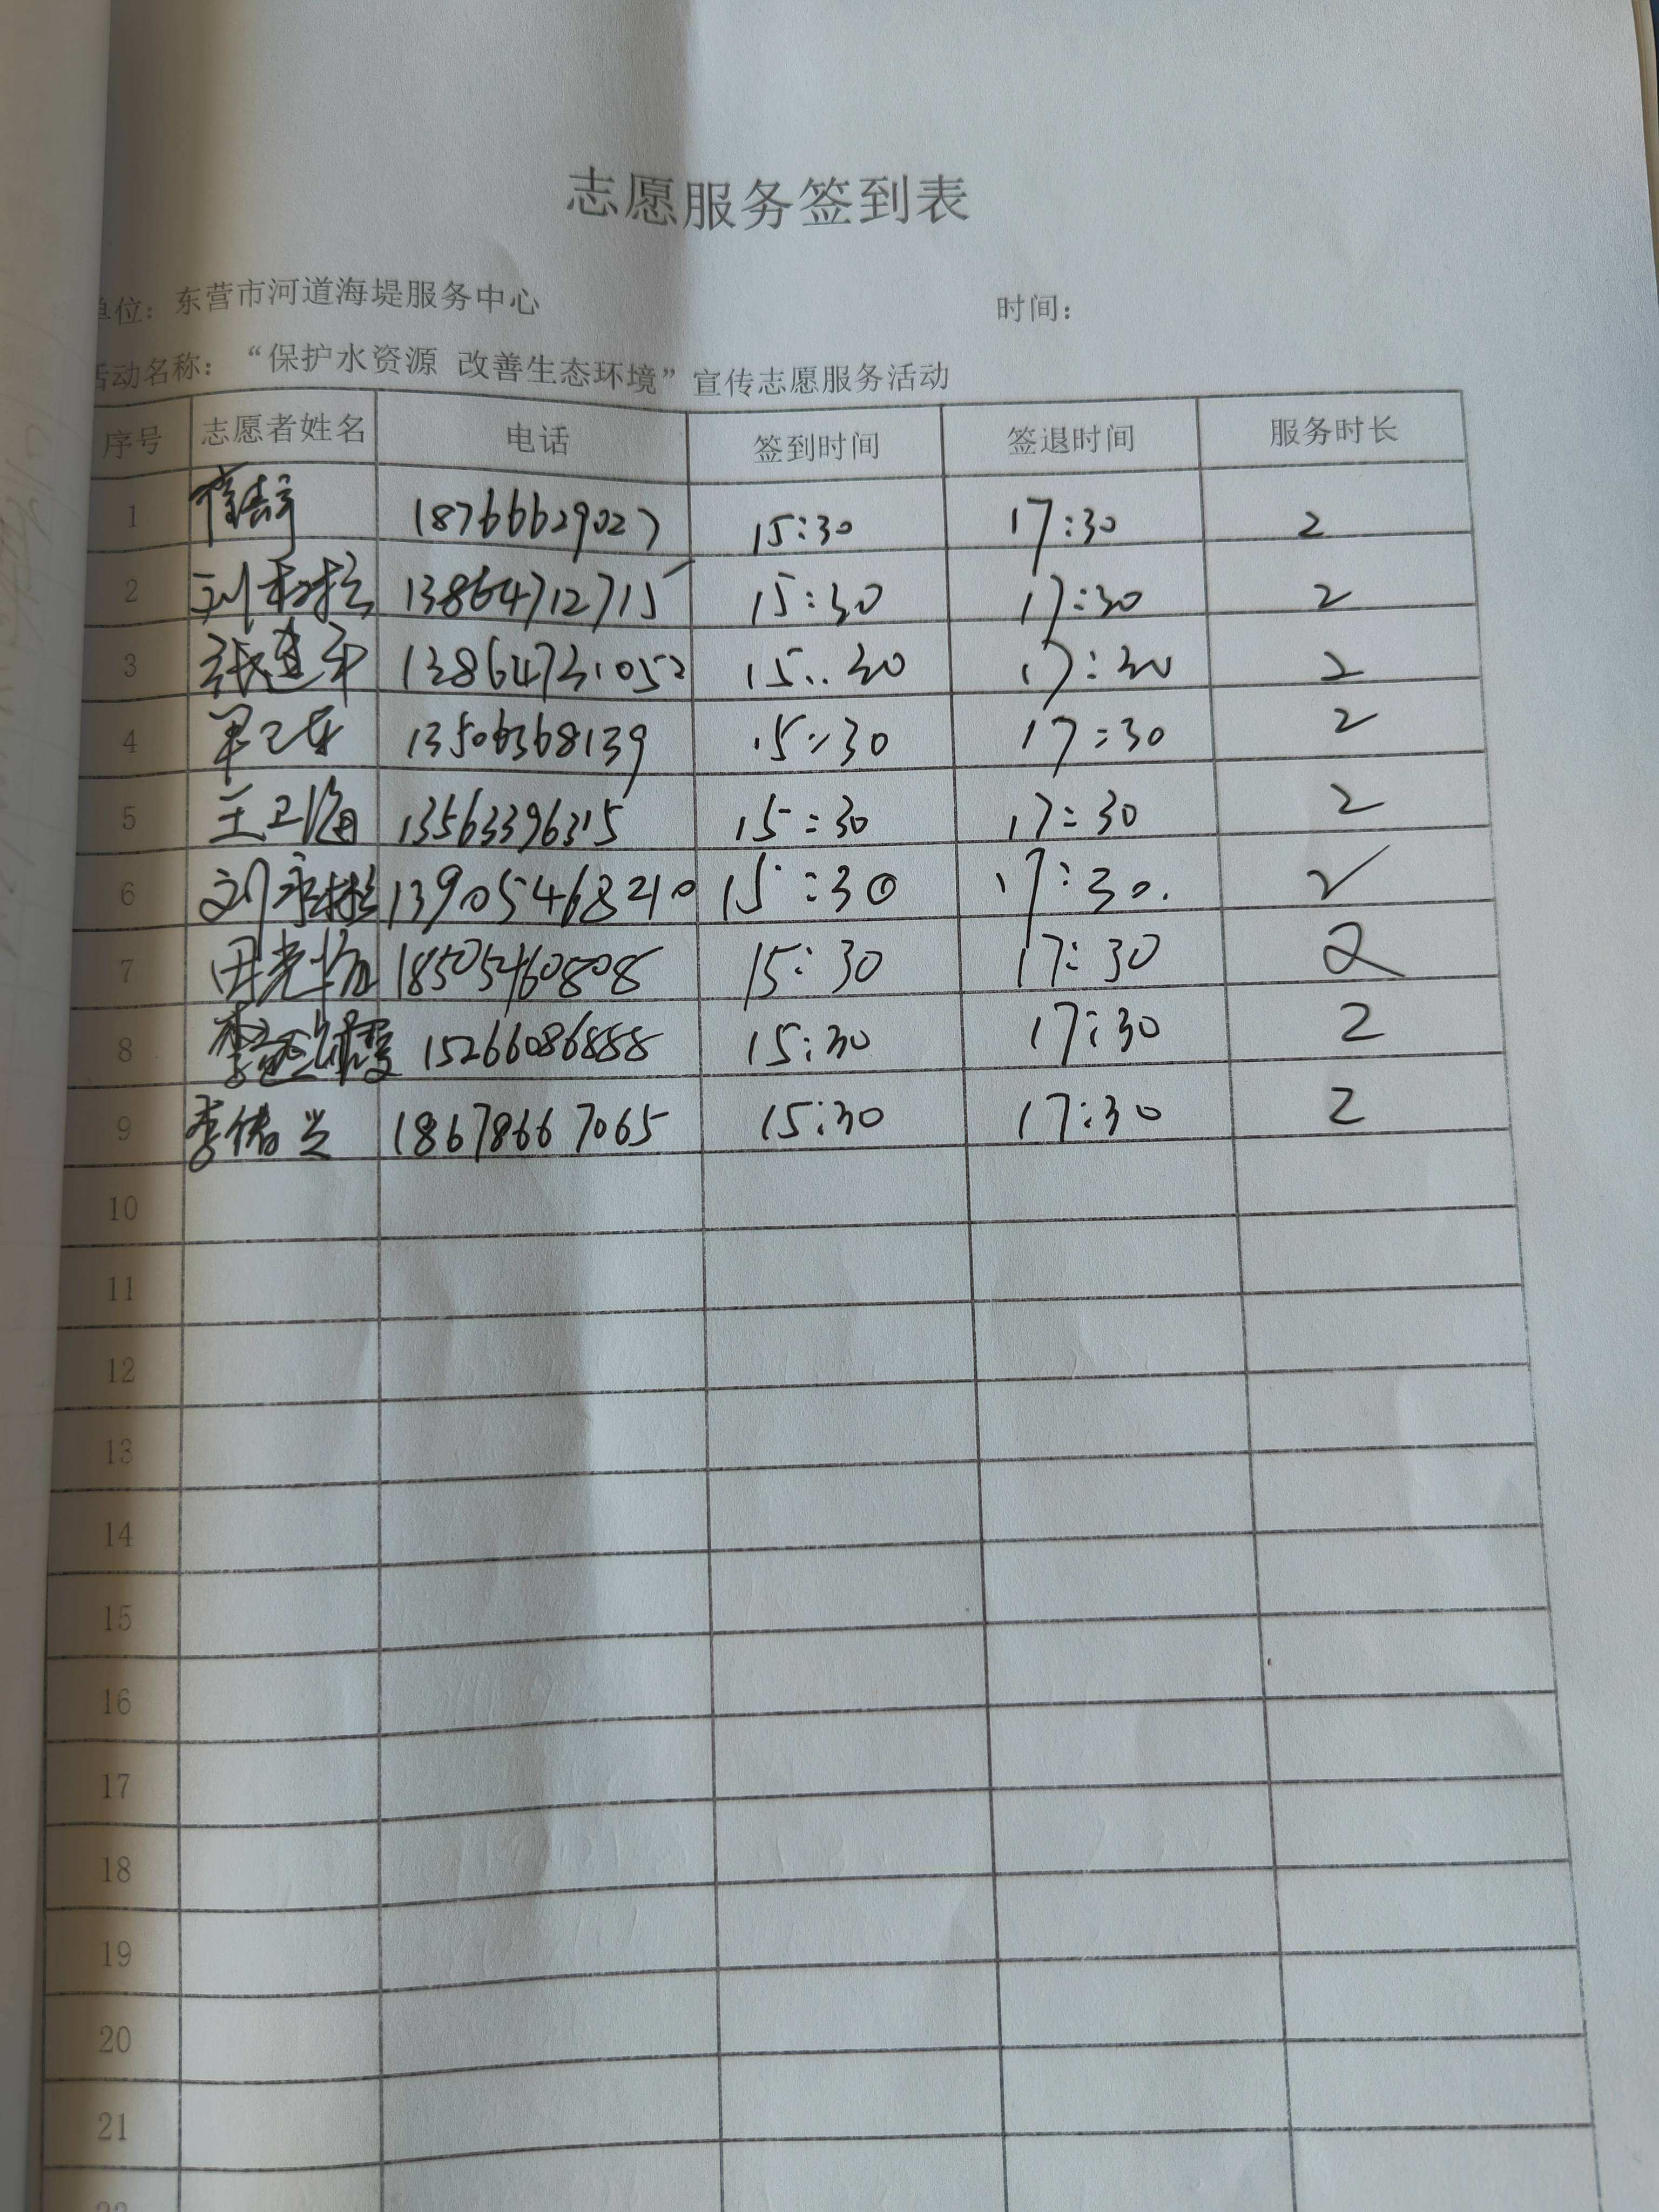 志愿服务签到表
单位：东营市河道海堤服务中心 时间：
活动名称：“保护水资源 改善生态环境”宣传志愿服务活动
序号 志愿者姓名 电话 签到时间 签退时间 服务时长
1 18766629027 15:30 17:30 2
2 13864712715 15:30 17:30 2
3 张建平 13864731052 15:30 17:30 2
4 13506368139 15:30 17:30 2
5 王卫海 13563396315 15:30 17:30 2
6 13905468210 15:30 17:30. 2
7 田光 18505460808 15:30 17:30 2
8 15266086888 15:30 17:30 2
9 18678667065 15:30 17:30 2
10
11
12
13
14
15
16
17
18
19
20
21
22